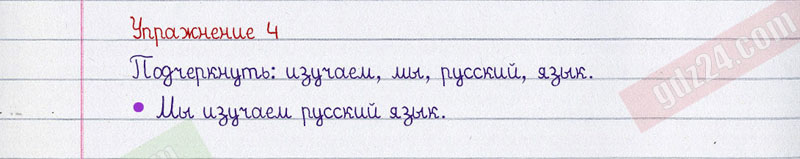 Упражнение 4
Подчеркнуть: изучаем, мы, русский, язык.
• Мы изучаем русский язык.
gdz24.com